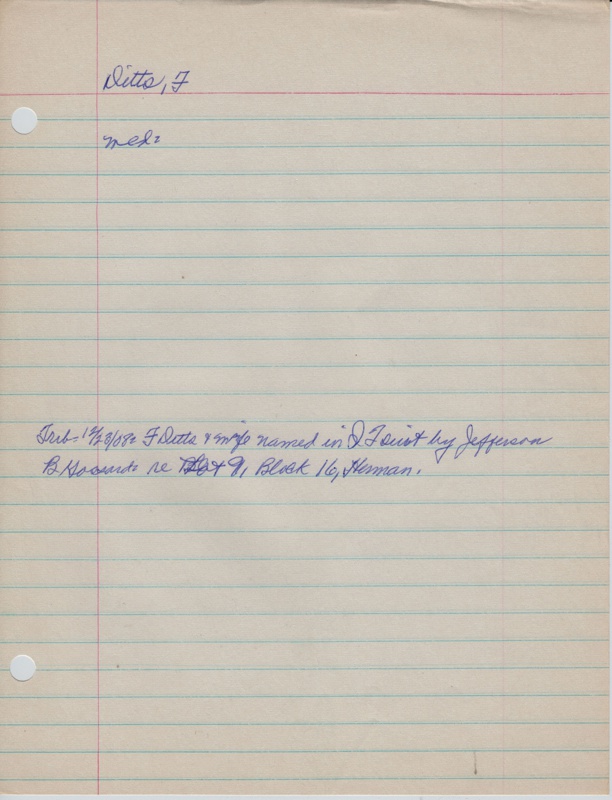 Ditto, F
med:
Trib: 12/23/08: F Ditto & wife named in Q T suit by Jefferson
B re Lot 9, Block 16, Herman.